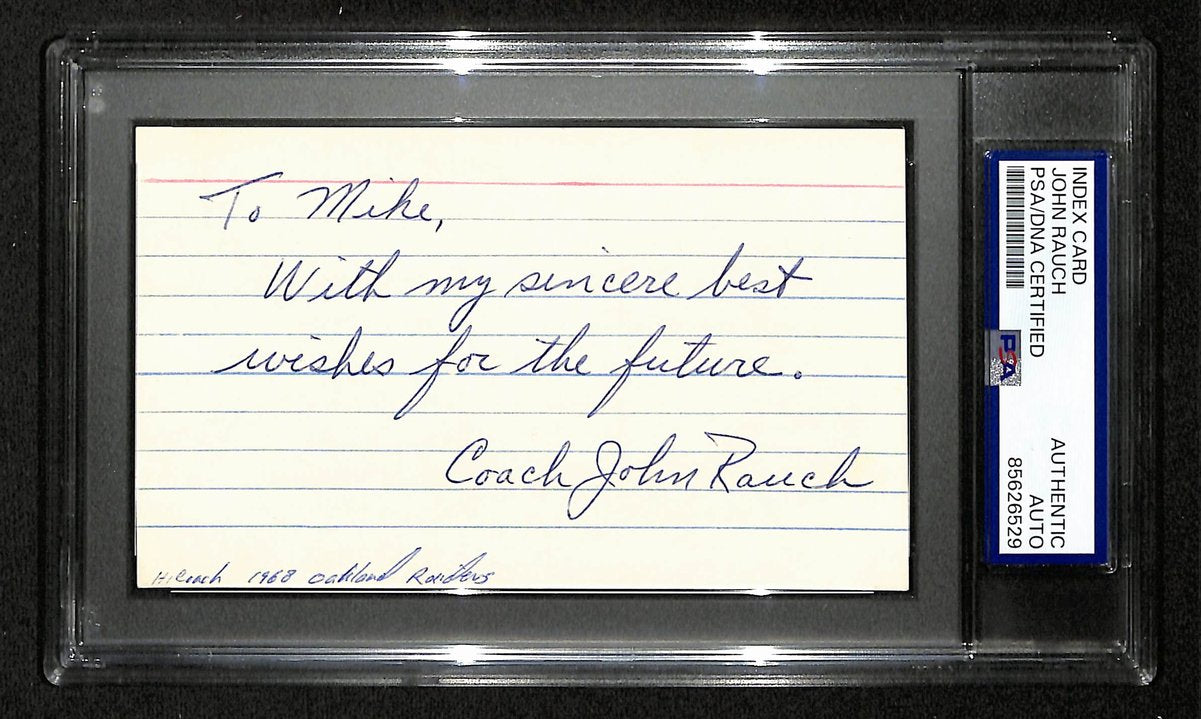 To Mike,
With my sincere best
wishes for the future.
Coach John Rauch
H. Coach 1968 Oakland Raiders
INDEX CARD
JOHN RAUCH
PSA/DNA CERTIFIED
PSA
AUTHENTIC
AUTO
85626529